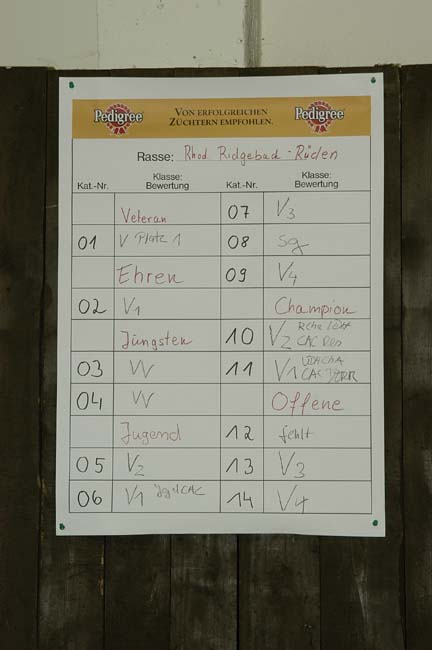 Pedigree VON ERFOLGREICHEN ZÜCHTERN EMPFOHLEN. Pedigree
Rasse: Rhod Ridgeback - Rüden
Kat.-Nr. Klasse: Bewertung Kat.-Nr. Klasse: Bewertung
Veteran
01 V Platz 1
Ehren
02 V1
Jüngsten
03 VV
04 VV
Jugend
05 V2
06 V1
07 V3
08 Sg
09 V4
Champion
10 V2 CAC Res
11 V1 CAC
Offene
12 fehlt
13 V3
14 V4